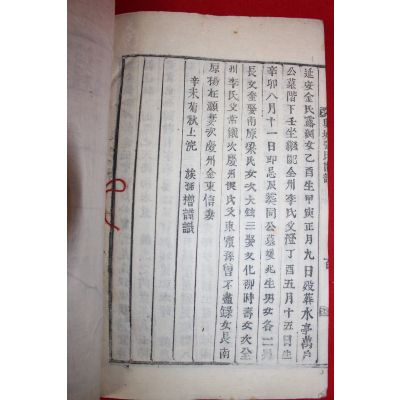 延安金氏爲潤女乙酉生甲寅正月九日歿葬水亭萬戶
公墓階下壬坐繼配全州李氏文澄丁酉五月十五日生
辛卯八月十一日卽忌辰葬同公墓雙兆生男女各二男
長文奎娶南原梁氏女次夫錢三娶文化柳時壽女次全
州李氏文常儀次慶州 氏文東震孫曾不盡錄女長南
原楊在灝妻次慶州金東信妻
辛未菊秋上浣 族 謹識